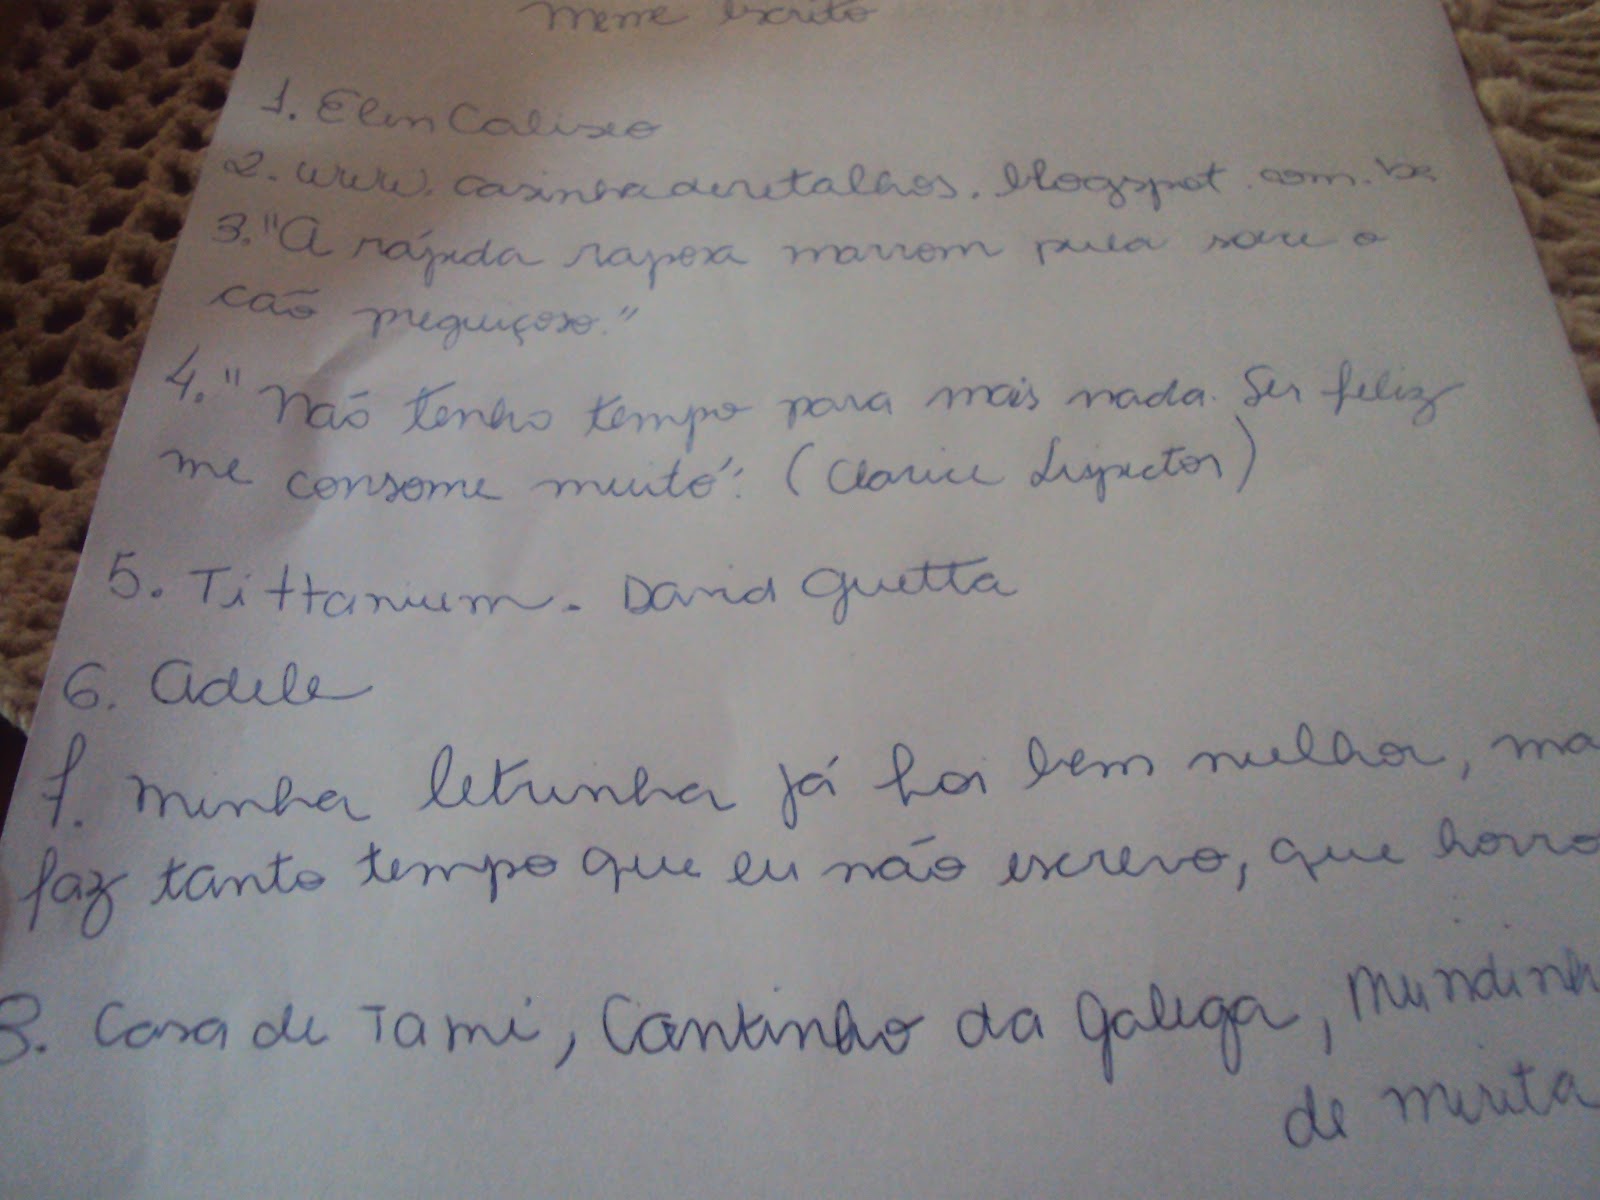 Meme escrito
1. Elen Calixto
2. www.casinhaderetalhos.blogspot.com.br
3. "A rápida raposa marrom pula sobre o
cão preguiçoso."
4. "Não tenho tempo para mais nada. Ser feliz
me consome muito". (Clarice Lispector)
5. Tittanium - David Guetta
6. Adele
7. Minha letrinha já foi bem melhor, ma
faz tanto tempo que eu não escrevo, que horro
8. Casa de Tami, Cantinho da Galega, Mundinh
de Mirita